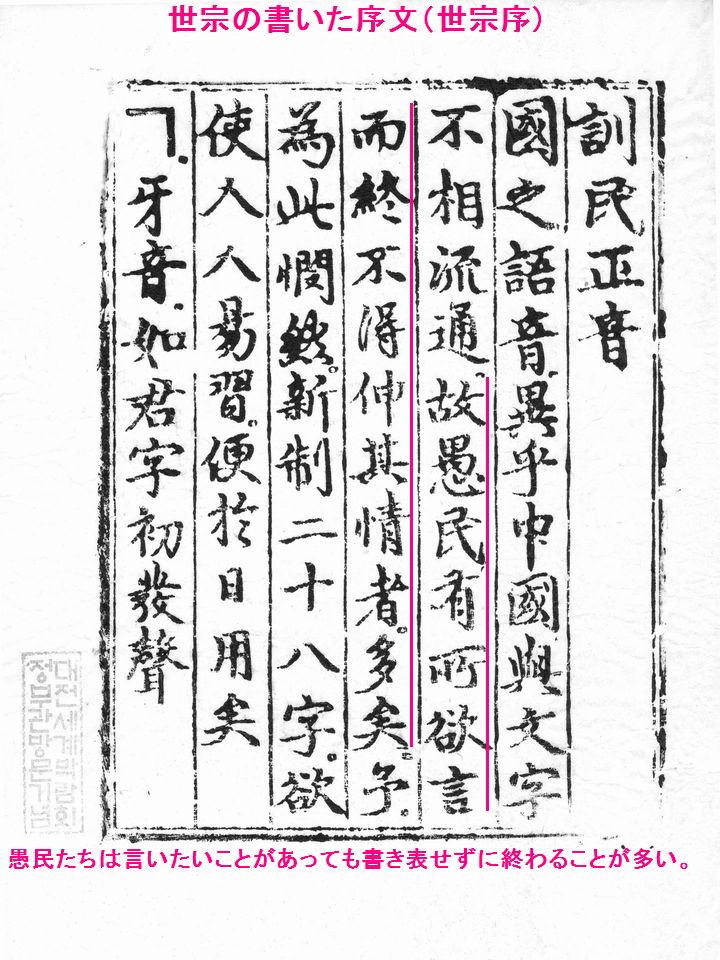 世宗の書いた序文(世宗序)
訓民正音
國之語音。異乎中國與文字
不相流通。故愚民有所欲言
而終不得伸其情者。多矣。予。
為此憫然。新制二十八字。欲
使人人易習。便於日用矣
ㄱ。牙音。如君字初發聲
대전세계박람회
정부관방문기념
愚民たちは言いたいことがあっても書き表せずに終わることが多い。